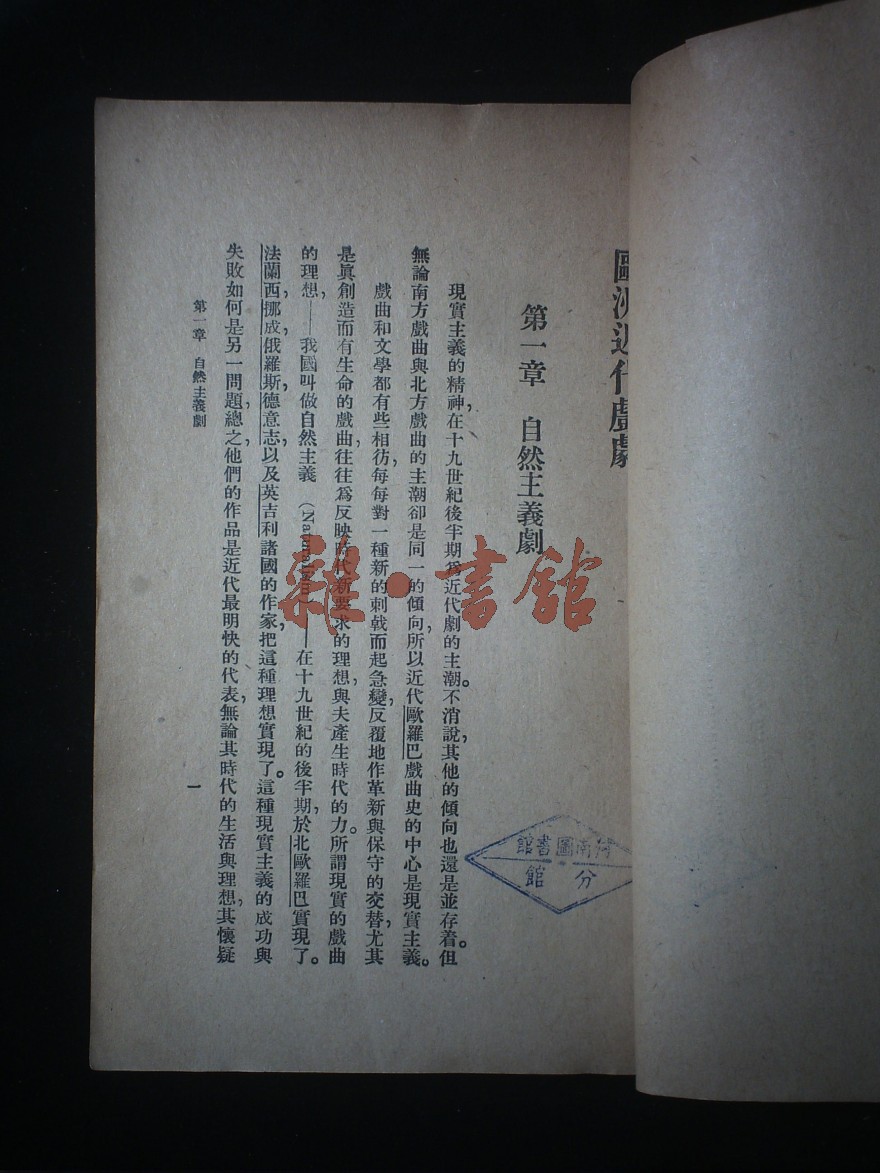 歐洲近代戲劇
第一章　自然主義劇
現實主義的精神，在十九世紀後半期爲近代劇的主潮。不消說，其他的傾向也還是並存着。但
無論南方戲曲與北方戲曲的主潮卻是同一的傾向，所以近代歐羅巴戲曲史的中心是現實主義。
戲曲和文學都有些相彷，每每對一種新的刺戟而起急變，反覆地作革新與保守的交替，尤其
是眞創造而有生命的戲曲，往往爲反映時代新要求的理想，與夫產生時代的力。所謂現實的戲曲
的理想，——我國叫做自然主義 (Naturalism)——在十九世紀的後半期，於北歐羅巴實現了。
法蘭西，挪威，俄羅斯，德意志，以及英吉利諸國的作家，把這種理想實現了。這種現實主義的成功與
失敗如何是另一問題，總之，他們的作品是近代最明快的代表，無論其時代的生活與理想，其懷疑
第一章　自然主義劇
一
南圖書館
分館
雜·書館